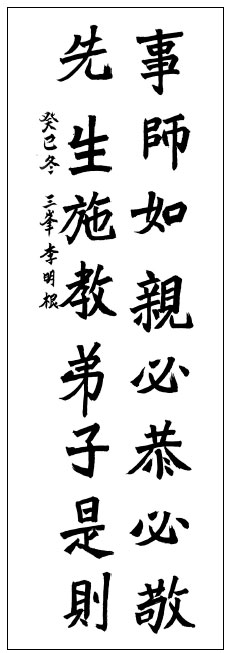 事師如親必恭必敬
先生施教弟子是則
癸巳冬 三峯 李明根